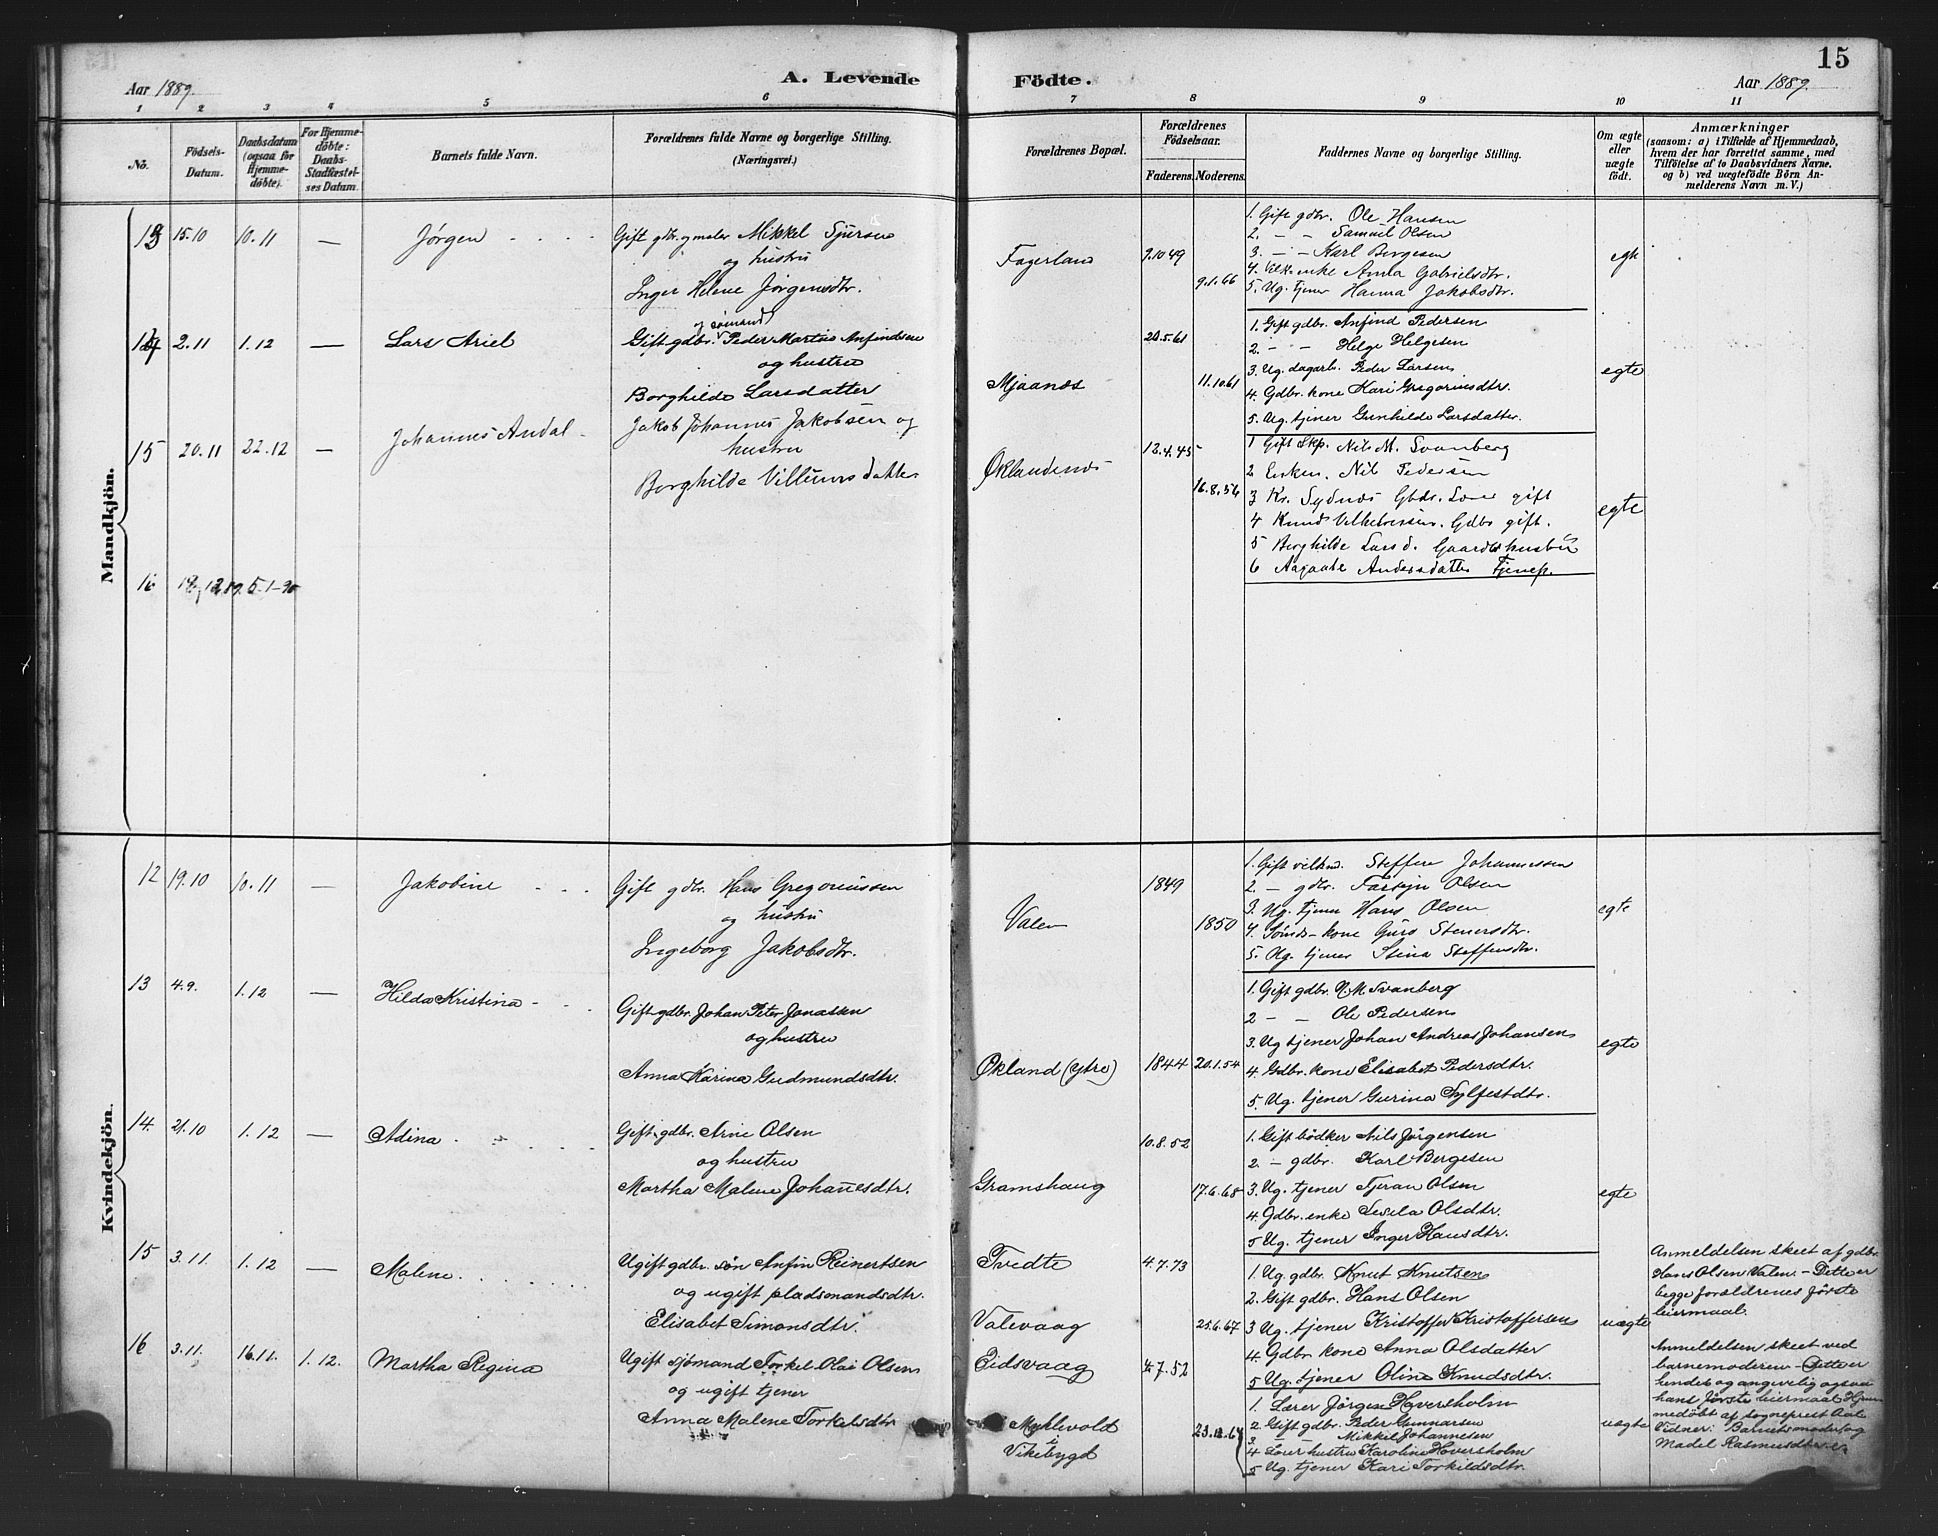 Aar 1889.
A. Levende Födte.
Aar 1889.
15
1 2 3 4 5 6 7 8 9 10 11
No.
Födsels-Datum.
Daabsdatum (ogsaa for Hjemmedöbte).
For Hjemmedöbte: Daabs-Stadfæstelses Datum.
Barnets fulde Navn.
Forældrenes fulde Navne og borgerlige Stilling.
(Næringsvei.)
Forældrenes Bopæl.
Forældrenes Födselsaar.
Faderens. Moderens.
Faddernes Navne og borgerlige Stilling.
Om ægte eller uægte födt.
Anmærkninger
(saasom: a) i Tilfælde af Hjemmedaab,
hvem der har forrettet samme, med
Tilföielse af to Daabsvidners Navne.
og b) ved uægtefödte Börn An-
melderens Navn m. V.)
Mandkjön.
13 15.10 10.11 — Jørgen
Gift gdbr. og maler Mikkel Sjursen
og hustru
Inger Helene Jørgensdtr.
Fagerland 9.10 49 9.1.66
1. Gift gdbr. Ole Hansen
2. — — Samuel Olsen
3. — — Karl Bergesen
4. enke Anna Gabrielsdtr.
5. Ug. tjener Hanna Jakobsdtr.
egte
14 2.11 1.12 — Lars Ariel
og sömand
Gift gdbr. Peder Martin Anfindsen
og hustru
Borghilde Larsdatter
Mjaanæs 20.5.61 11.10.61
1. Gift gdbr. Anfind Pedersen
2. — — Helge Helgesen
3. Ug. dagarb. Peder Larsen
4. Gdbr. kone Kari Gregoriusdtr.
5. Ug. tjener Gunhilde Larsdatter.
egte
15 20.11 22.12 — Johannes Andal
Jakob Johannes Jakobsen og
hustru
Borghilde Villumsdatter
Øklandsnæs 12.4.45 16.8.56
1 Gift Skp. Nils M. Svanberg
2 Nils Pedersen
3 Kr. Sydnæs Gbdr. gift
4 Knud Gdbr gift.
5 Borghilde Larsd. Gaardbr hustru
6 Aagaate Andersdatter Tjenep.
egte
16 12.89. 5-1-90
Kvindekjön.
12 19.10 10.11 — Jakobine
Gift gdbr. Hans Gregoriussen
og hustru
Ingeborg Jakobsdtr.
Valen 1849 1850
1. Gift Steffen Johannessen
2. — gdbr. Olsen
3. Ug. tjener Hans Olsen
4. kone Guro Stenersdtr.
5. Ug. tjener Stina Steffensdtr.
egte
13 4.9. 1.12 — Hilda Kristina
Gift gdbr. Johan Peter Jonassen
og hustru
Anna Karina Gudmundsdtr.
Økland (ytre) 1844 20.1.54
1. Gift gdbr. N. M. Svanberg
2 — — Ole Pedersen
3. Ug tjener Johan Andreas Johansen
4. Gdbr. kone Elisabet Pedersdtr.
5. Ug. tjener Gurina Sylfestdtr.
egte
14. 21.10 1.12 — Adina
Gift gdbr. Arne Olsen
og hustru
Martha Malene Johanesdtr.
Gramshaug 10.8.52 17.6.68
1. Gift bödker Nils Jörgensen
2. — gdbr. Karl Bergesen
3. Ug. tjener Tjeran Olsen
4. Gdbr. enke Sesela Olsdtr.
5 Ug. tjener Inger Hansdtr.
egte
15 3.11. 1.12 — Malene
Ugift gdbr. sön Anfin Reinertsen
og ugift pladsmandsdtr.
Elisabet Simonsdtr.
Tvedte
Valevaag
4.7.73 25.6.67
1. Ug. gdbr. Knut Knutsen
2. Gift gdbr. Hans Olsen
3 Ug. tjener Kristoffer Kristoffersen
4. Gdbr. kone Anna Olsdatter
5 Ug. tjener Oline Knudsdtr.
uægte
Anmeldelsen skeet af gdbr.
Hans Olsen Valen – Dette er
begge forældrenes förste
leiermaal.
16 3.11. 16.11. 1.12. Martha Regina
Ugift sjömand Torkel Olai Olsen
og ugift tjener
Anna Malene Torkelsdtr
Eidsvaag
Myklevold
i
Vikebygd
4.7.52
1. Lærer Jörgen Hoversholm
2. Gift gdbr. Peder Gunnarsen
3. — — Mikkel Johannesen
4 Lærer hustru Karoline Hoversholm
5 Ug. tjener Kari Torkildsdtr.
uægte
Anmeldelsen skeet ved
barnemoderen – Dette er
hendes og angivelig ogsaa
hans förste leiermaal. Hjem
medöbt af sogneprest
Vidner: Barnets moder og
Madel Rasmusdtr.